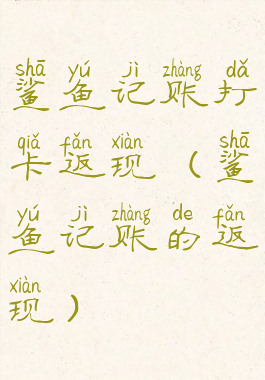 shā yú jì zhàng dǎ
鲨鱼记账打
qiǎ fǎn xiàn shā
卡返现（鲨
yú jì zhàng de fǎn
鱼记账的返
xiàn
现）